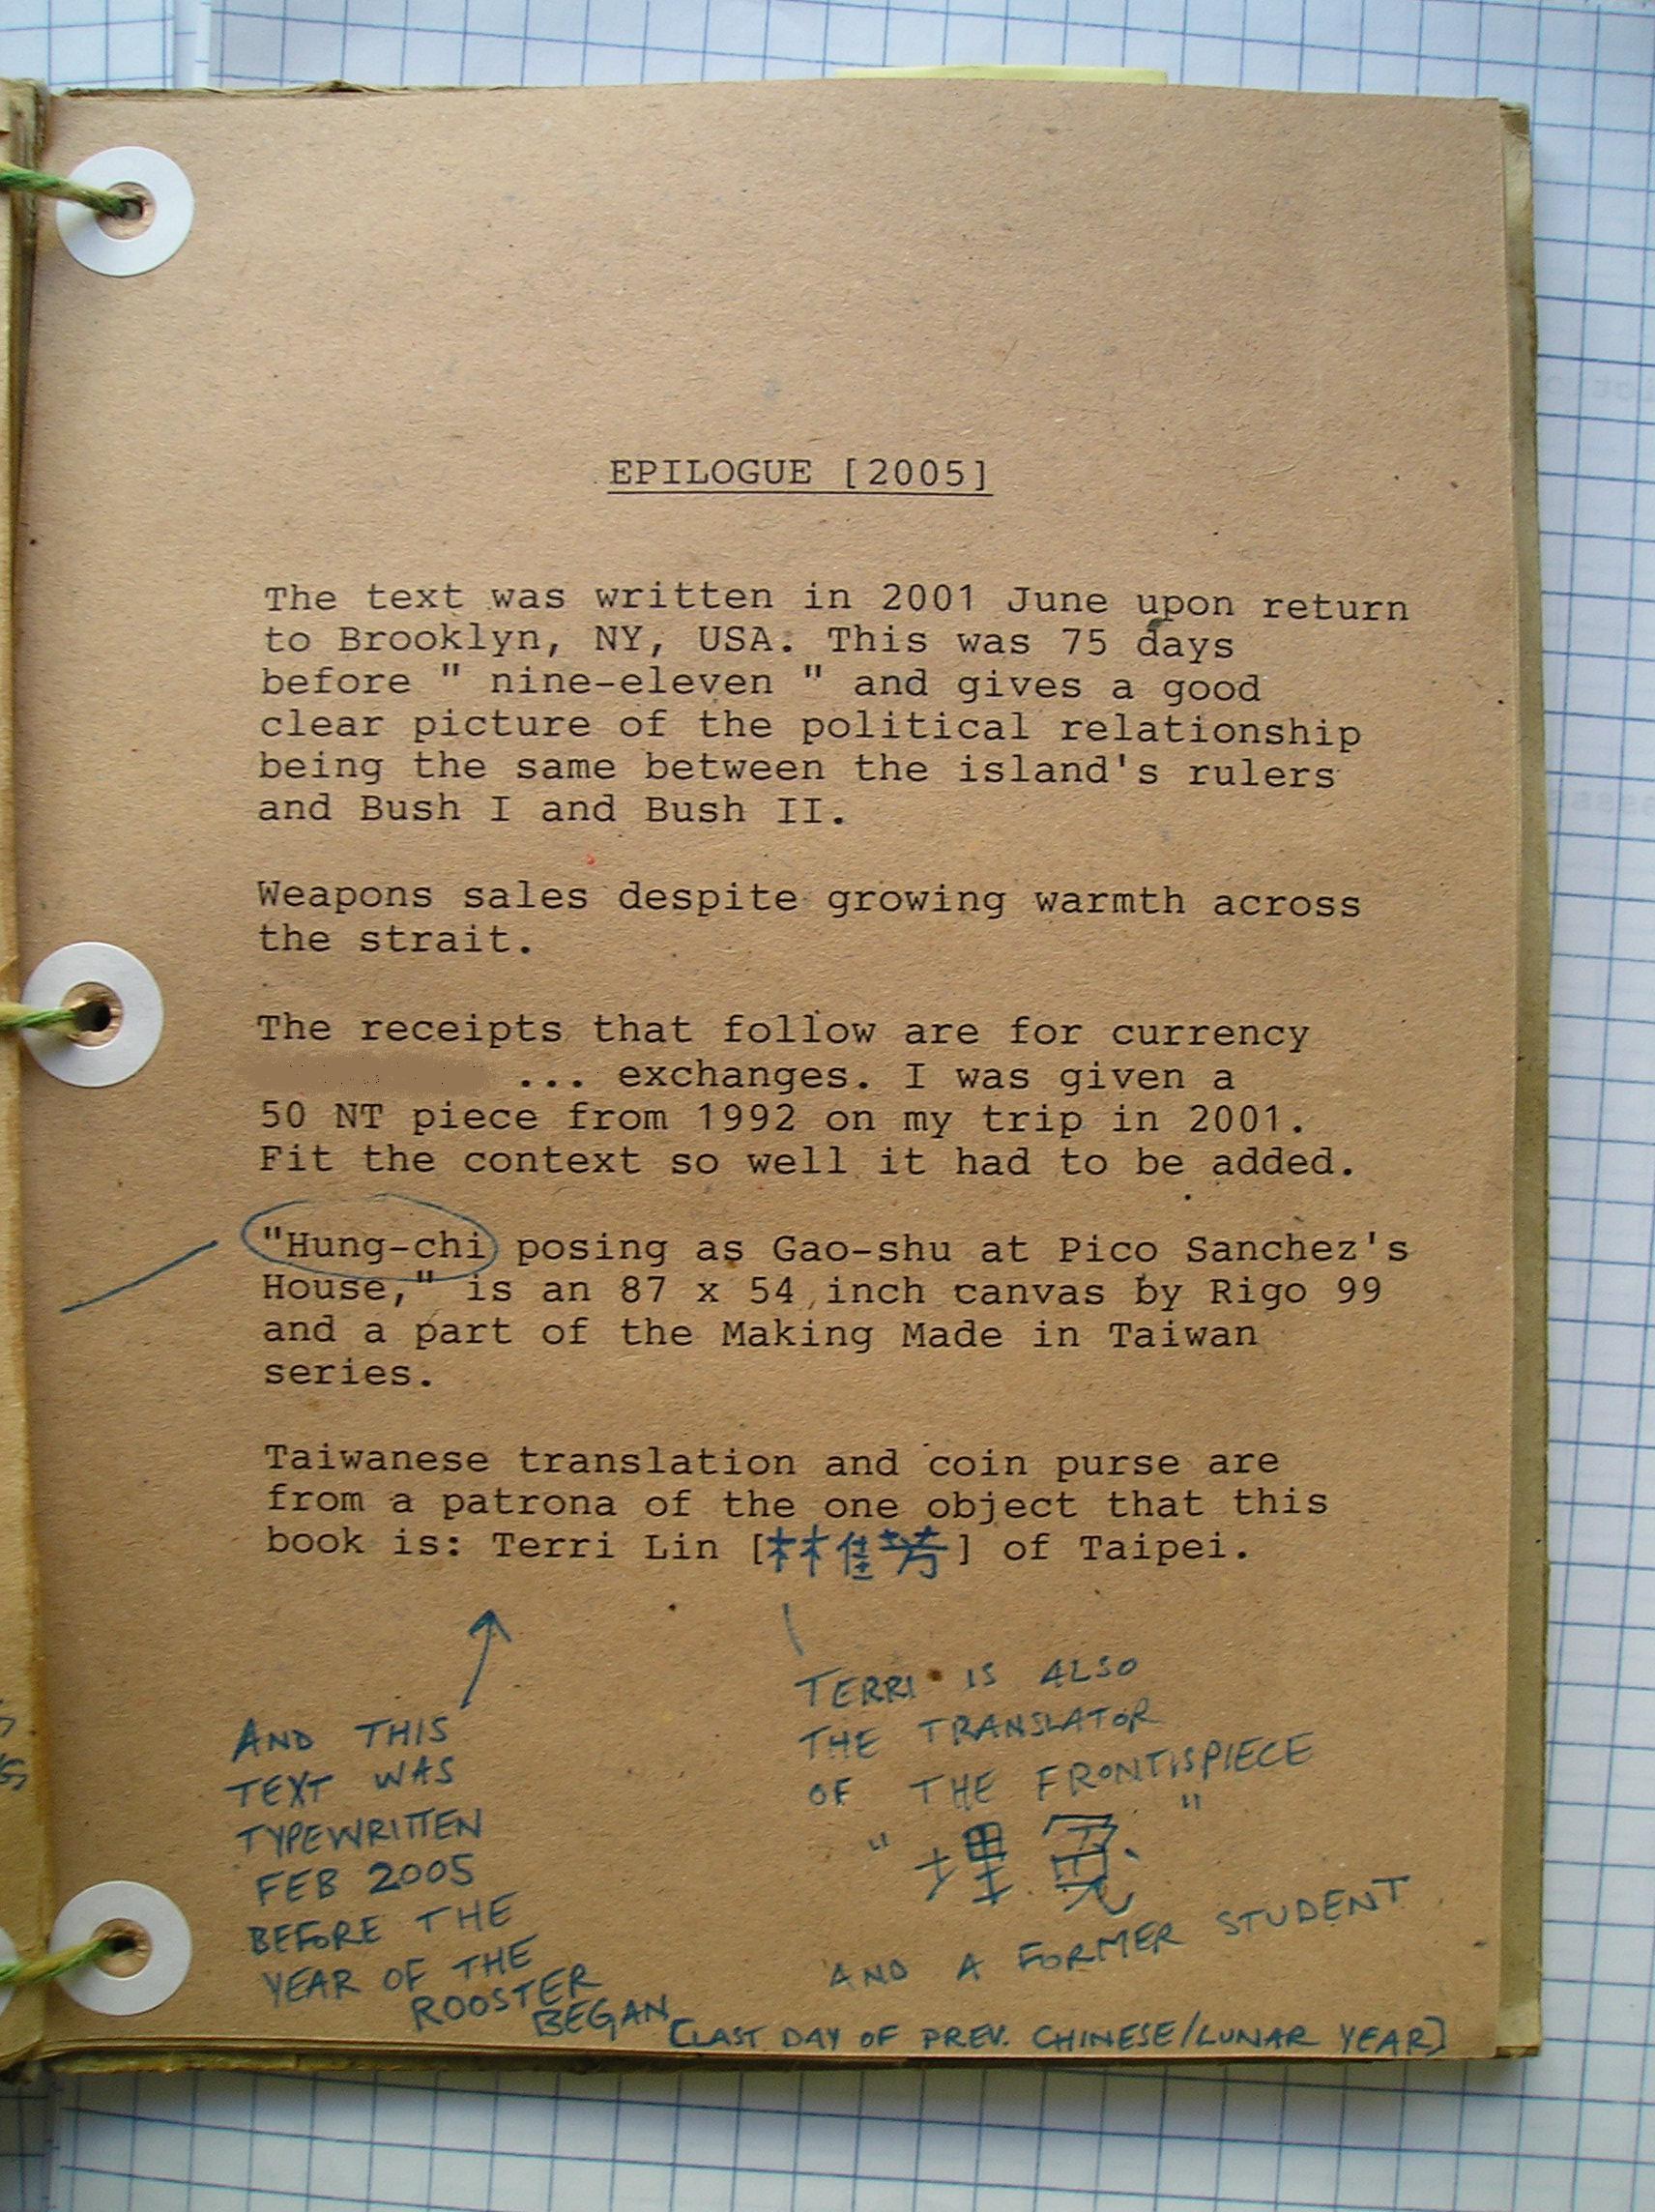 EPILOGUE [2005]
The text was written in 2001 June upon return
to Brooklyn, NY, USA. This was 75 days
before " nine-eleven " and gives a good
clear picture of the political relationship
being the same between the island's rulers
and Bush I and Bush II.
Weapons sales despite growing warmth across
the strait.
The receipts that follow are for currency
... exchanges. I was given a
50 NT piece from 1992 on my trip in 2001.
Fit the context so well it had to be added.
"Hung-chi posing as Gao-shu at Pico Sanchez's
House," is an 87 x 54 inch canvas by Rigo 99
and a part of the Making Made in Taiwan
series.
Taiwanese translation and coin purse are
from a patrona of the one object that this
book is: Terri Lin [林佳芳] of Taipei.
AND THIS
TEXT WAS
TYPEWRITTEN
FEB 2005
BEFORE THE
YEAR OF THE
ROOSTER
BEGAN
[LAST DAY OF PREV. CHINESE/LUNAR YEAR]
TERRI IS ALSO
THE TRANSLATOR
OF THE FRONTISPIECE
"埋冤"
AND A FORMER STUDENT